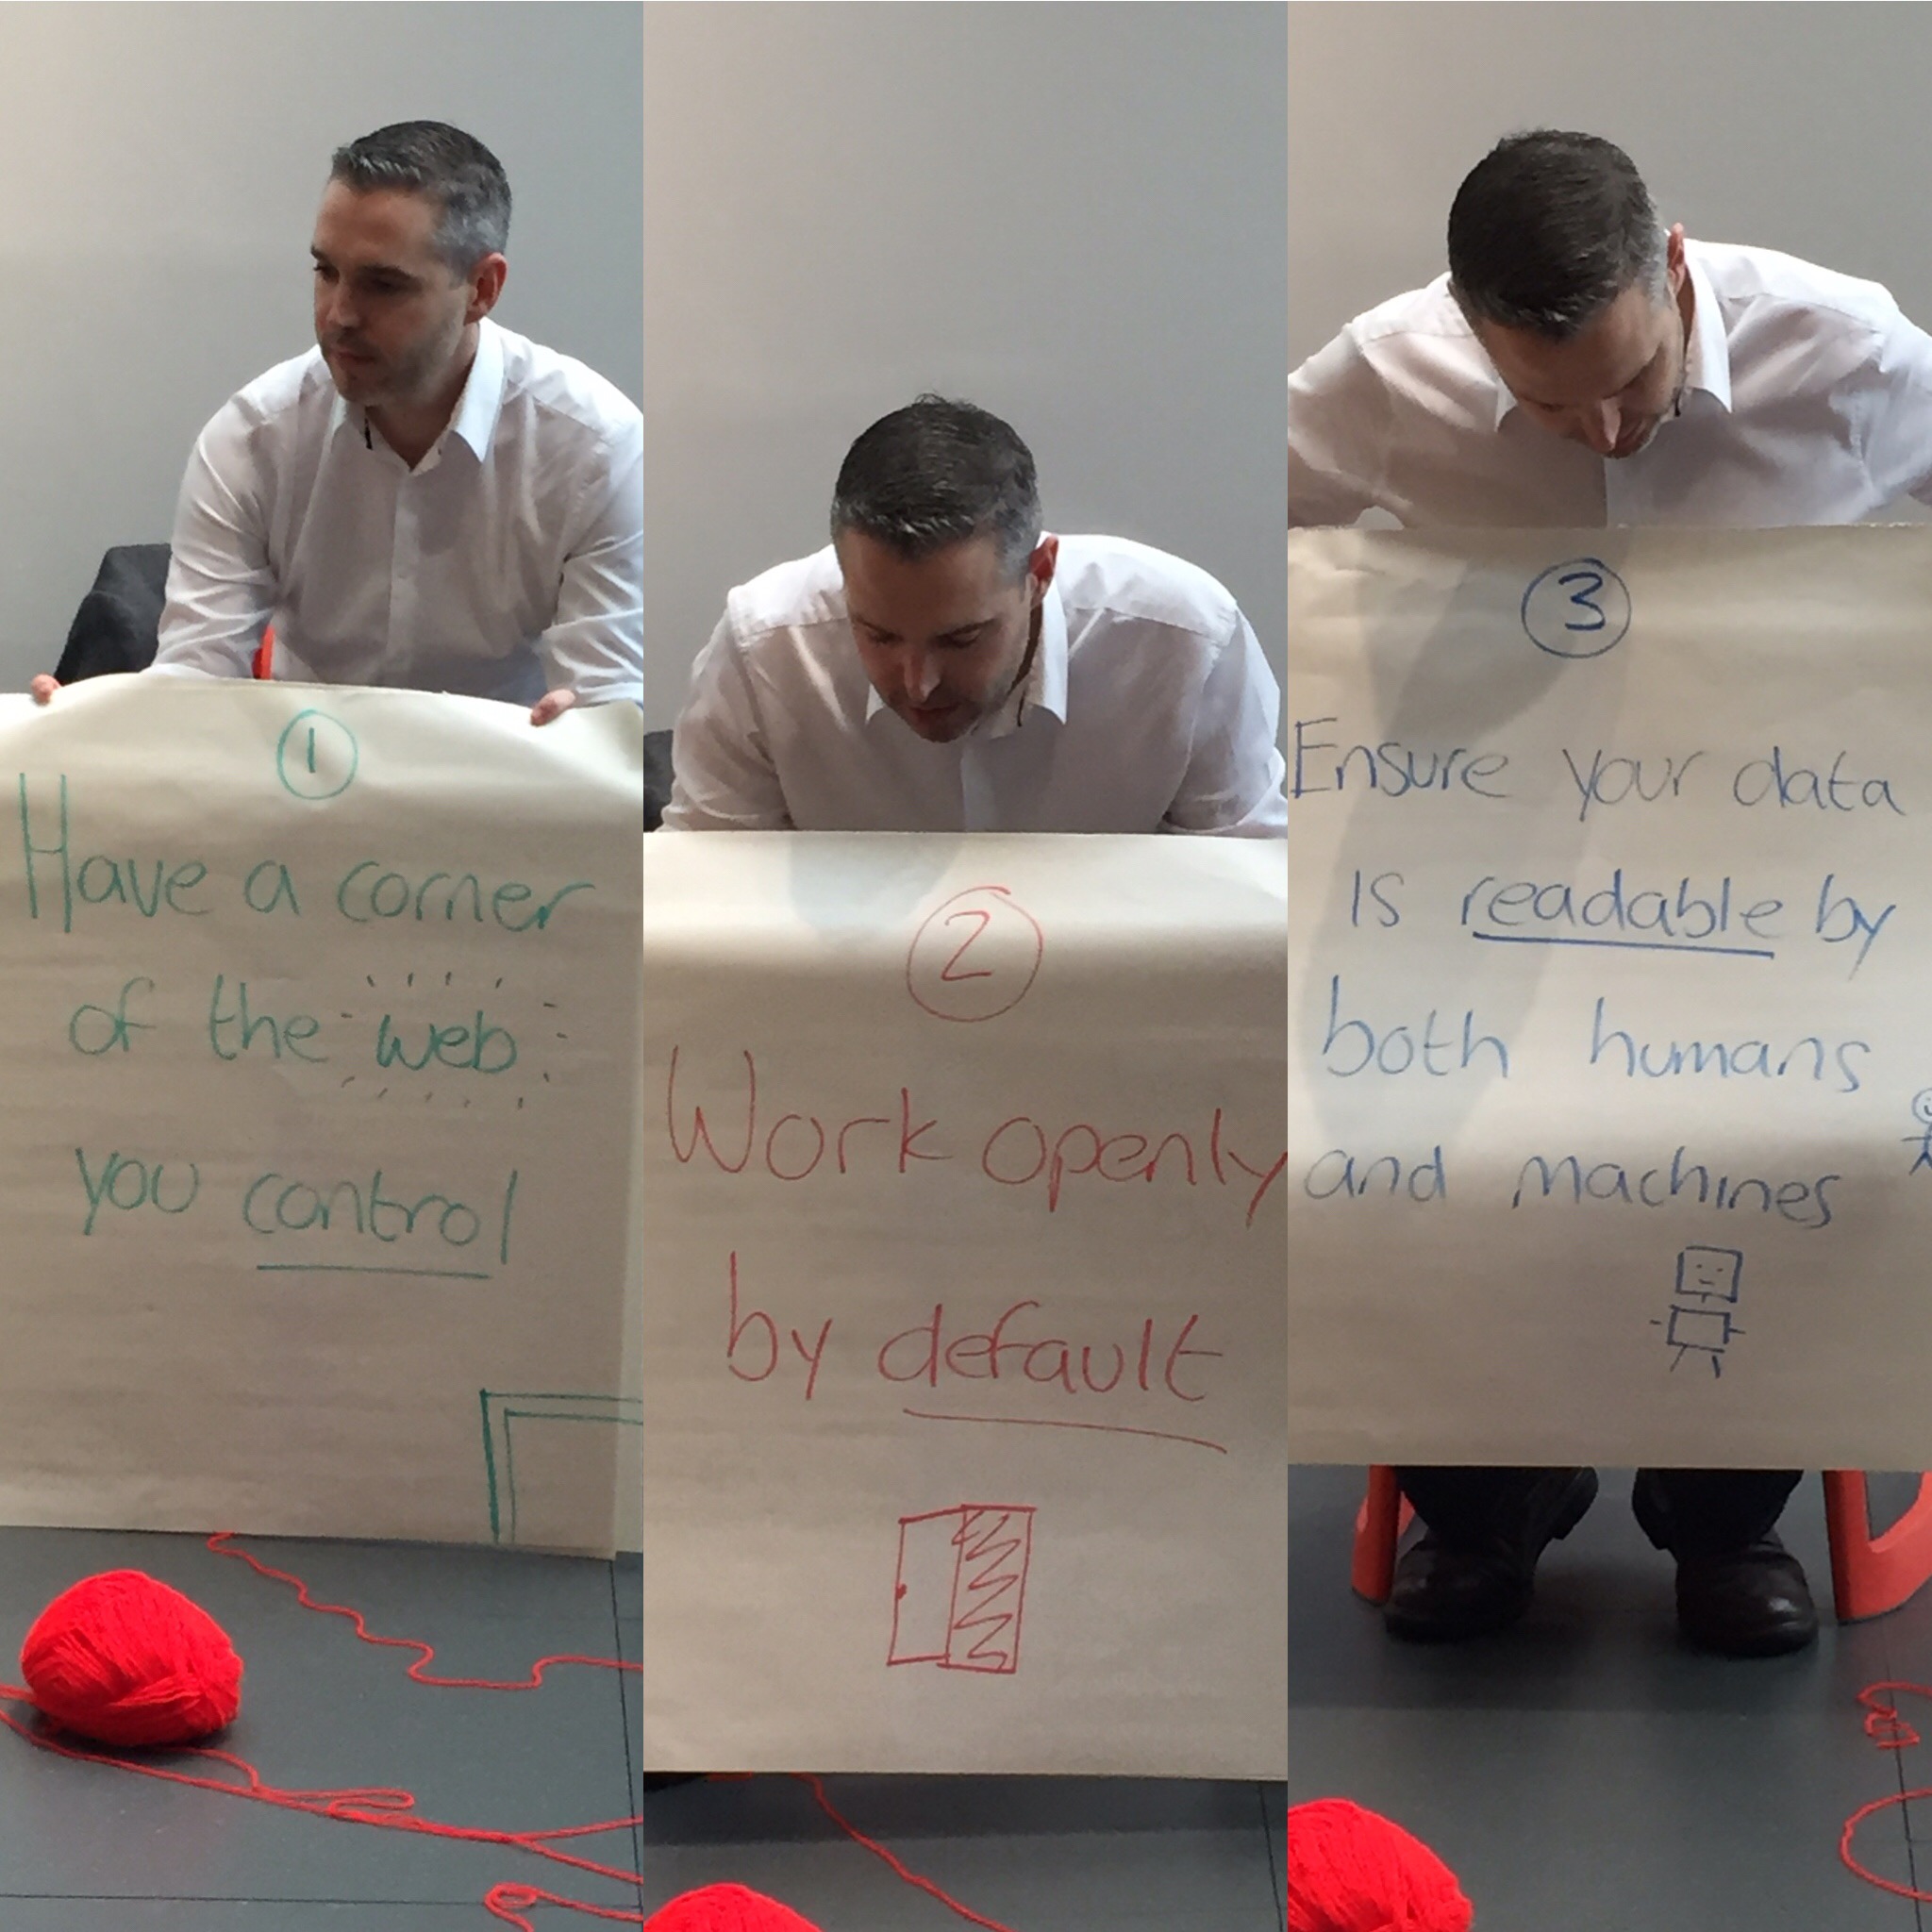 1
Have a corner
of the web
you control
2
Work openly
by default
3
Ensure your data
is readable by
both humans
and machines